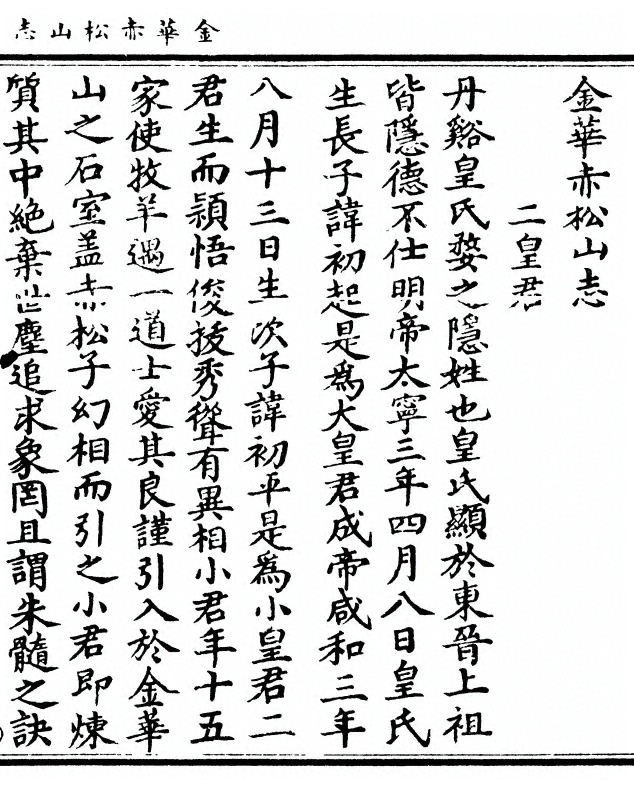 金華赤松山志
金華赤松山志
二皇君
丹谿皇氏婺之隱姓也皇氏顯於東晉上祖
皆隱德不仕明帝太寧三年四月八日皇氏
生長子諱初起是爲大皇君成帝咸和三年
八月十三日生次子諱初平是爲小皇君二
君生而頴悟俊拔秀聳有異相小君年十五
家使牧羊遇一道士愛其良謹引入於金華
山之石室盖赤松子幻相而引之小君即煉
質其中絶棄世塵追求象罔且謂朱髓之訣